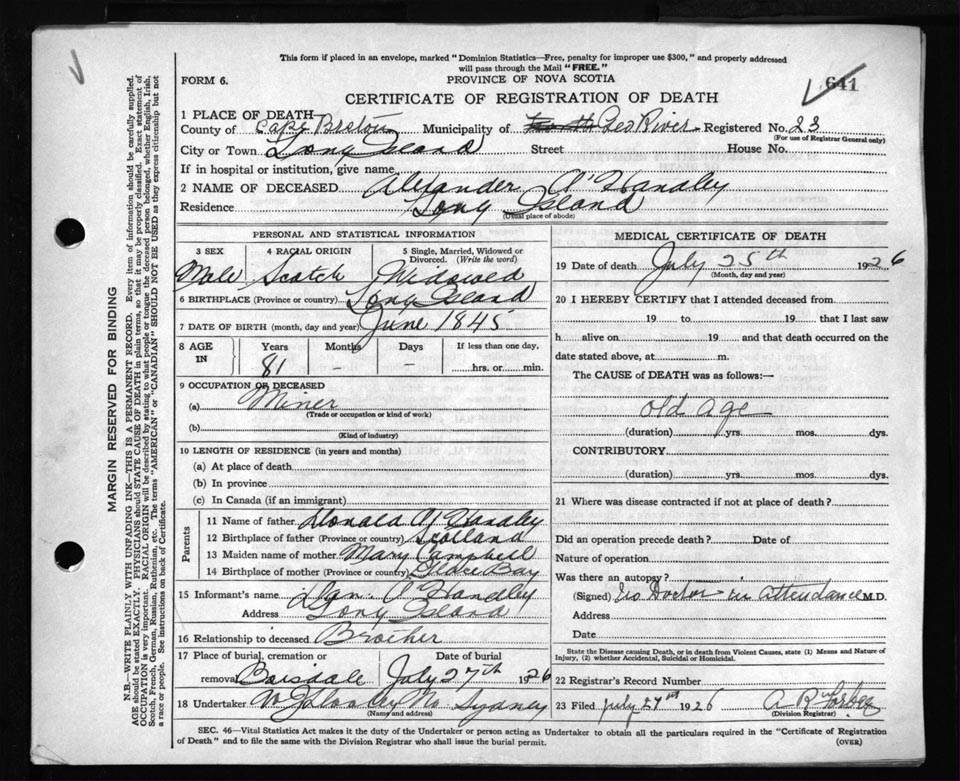 This form if placed in an envelope, marked "Dominion Statistics—Free, penalty for improper use $300," and properly addressed
will pass through the Mail "FREE."
FORM 6. PROVINCE OF NOVA SCOTIA 641
CERTIFICATE OF REGISTRATION OF DEATH
1 PLACE OF DEATH
County of Cape Breton Municipality of Leo River Registered No. 23
(For use of Registrar General only)
City or Town Long Island Street House No.
If in hospital or institution, give name
2 NAME OF DECEASED Alexander O'Handley
Residence Long Island
(Usual place of abode)
PERSONAL AND STATISTICAL INFORMATION
3 SEX 4 RACIAL ORIGIN 5 Single, Married, Widowed or
Divorced. (Write the word)
Male Scotch Widowed
6 BIRTHPLACE (Province or country) Long Island
7 DATE OF BIRTH (month, day and year) June 1845
8 AGE IN Years Months Days If less than one day,
81 - - hrs. or min.
9 OCCUPATION OF DECEASED
(a) Miner
(Trade or occupation or kind of work)
(b)
(Kind of industry)
10 LENGTH OF RESIDENCE (in years and months)
(a) At place of death
(b) In province
(c) In Canada (if an immigrant)
Parents
11 Name of father Donald O'Handley
12 Birthplace of father (Province or country) Scotland
13 Maiden name of mother Mary Campbell
14 Birthplace of mother (Province or country) Glace Bay
15 Informant's name Dan. O'Handley
Address Long Island
16 Relationship to deceased Brother
17 Place of burial, cremation or Date of burial
removal Boisdale July 27th 1926
18 Undertaker No Sydney
(Name and address)
MEDICAL CERTIFICATE OF DEATH
19 Date of death July 25th 1926
(Month, day and year)
20 I HEREBY CERTIFY that I attended deceased from
19 to 19 that I last saw
h alive on 19 and that death occurred on the
date stated above, at m.
The CAUSE of DEATH was as follows:—
Old Age
(duration) yrs. mos. dys.
CONTRIBUTORY
(duration) yrs. mos. dys.
21 Where was disease contracted if not at place of death?
Did an operation precede death? Date of
Nature of operation
Was there an autopsy?
(Signed) No Doctor in Attendance M.D.
Address
Date
State the Disease causing Death, or in death from Violent Causes, state (1) Means and Nature of
Injury, (2) whether Accidental, Suicidal or Homicidal.
22 Registrar's Record Number
23 Filed July 27th 1926 A R Forbes
(Division Registrar)
SEC. 46—Vital Statistics Act makes it the duty of the Undertaker or person acting as Undertaker to obtain all the particulars required in the "Certificate of Registration
of Death" and to file the same with the Division Registrar who shall issue the burial permit. (OVER)
MARGIN RESERVED FOR BINDING
N.B.—WRITE PLAINLY WITH UNFADING INK—THIS IS A PERMANENT RECORD. Every item of information should be carefully supplied.
AGE should be stated EXACTLY. PHYSICIANS should STATE CAUSE OF DEATH in plain terms, so that it may be properly classified. Exact statement of
OCCUPATION is very important. RACIAL ORIGIN will be described by stating to what people or tongue the deceased person belonged, whether English, Irish,
Scotch, French, German, Russian, Ruthenian, etc. The terms "AMERICAN" or "CANADIAN" SHOULD NOT BE USED as they express citizenship but not
a race or people. See instructions on back of Certificate.